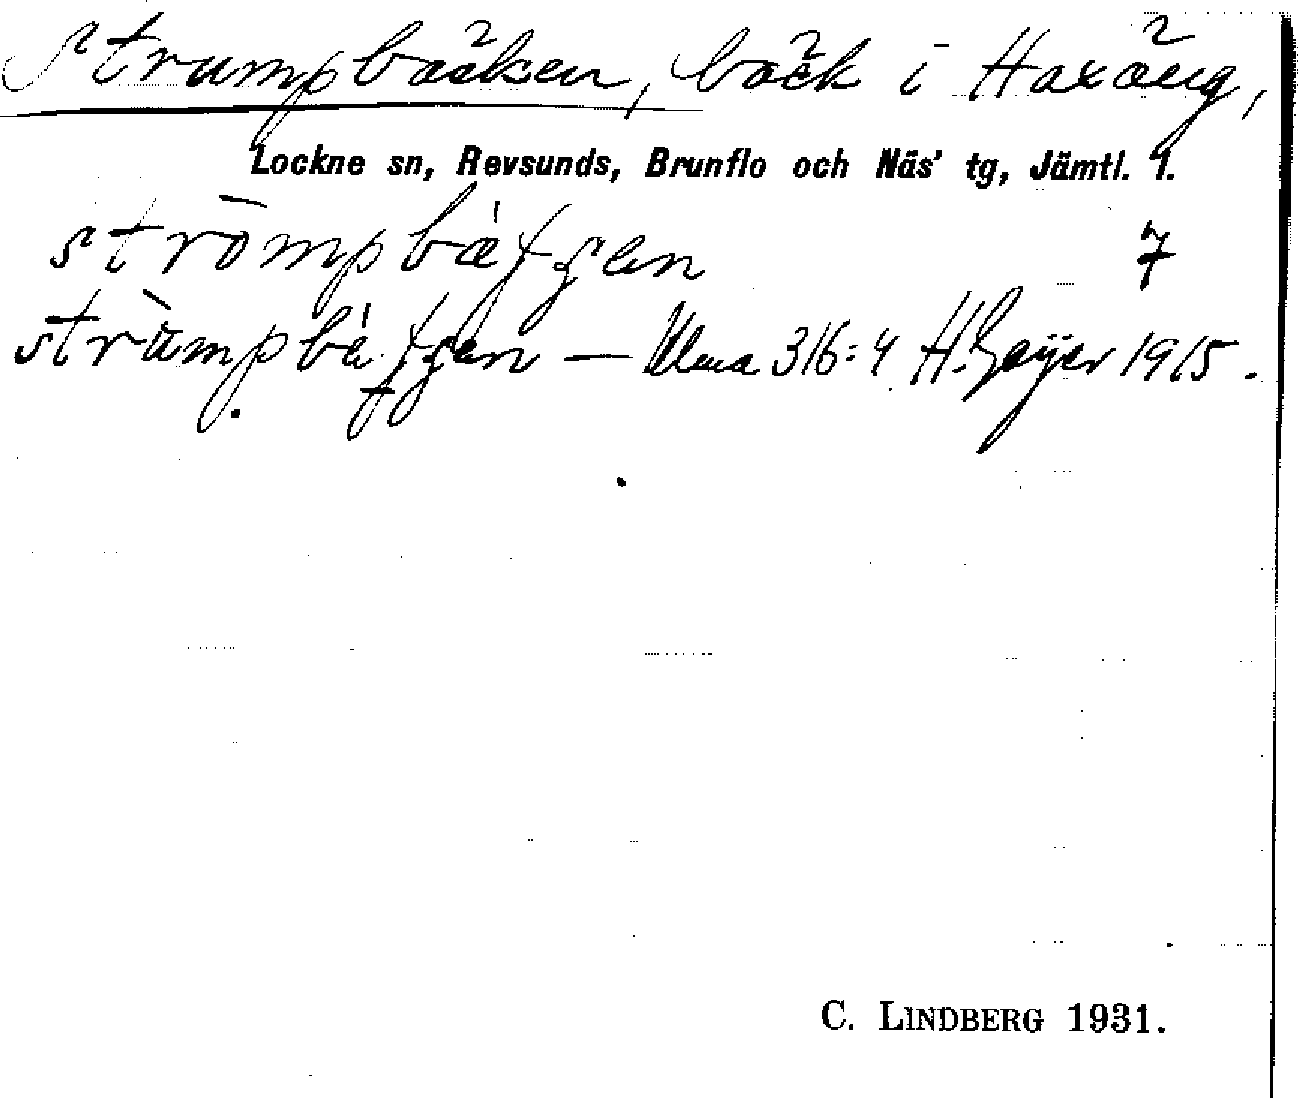 Strumpbäcken, bäck i Haxäng,
Lockne sn, Revsunds, Brunflo och Näs' tg, Jämtl. l.
7
— Ulma 316:4 H. Geijer 1915.
C. LINDBERG 1931.